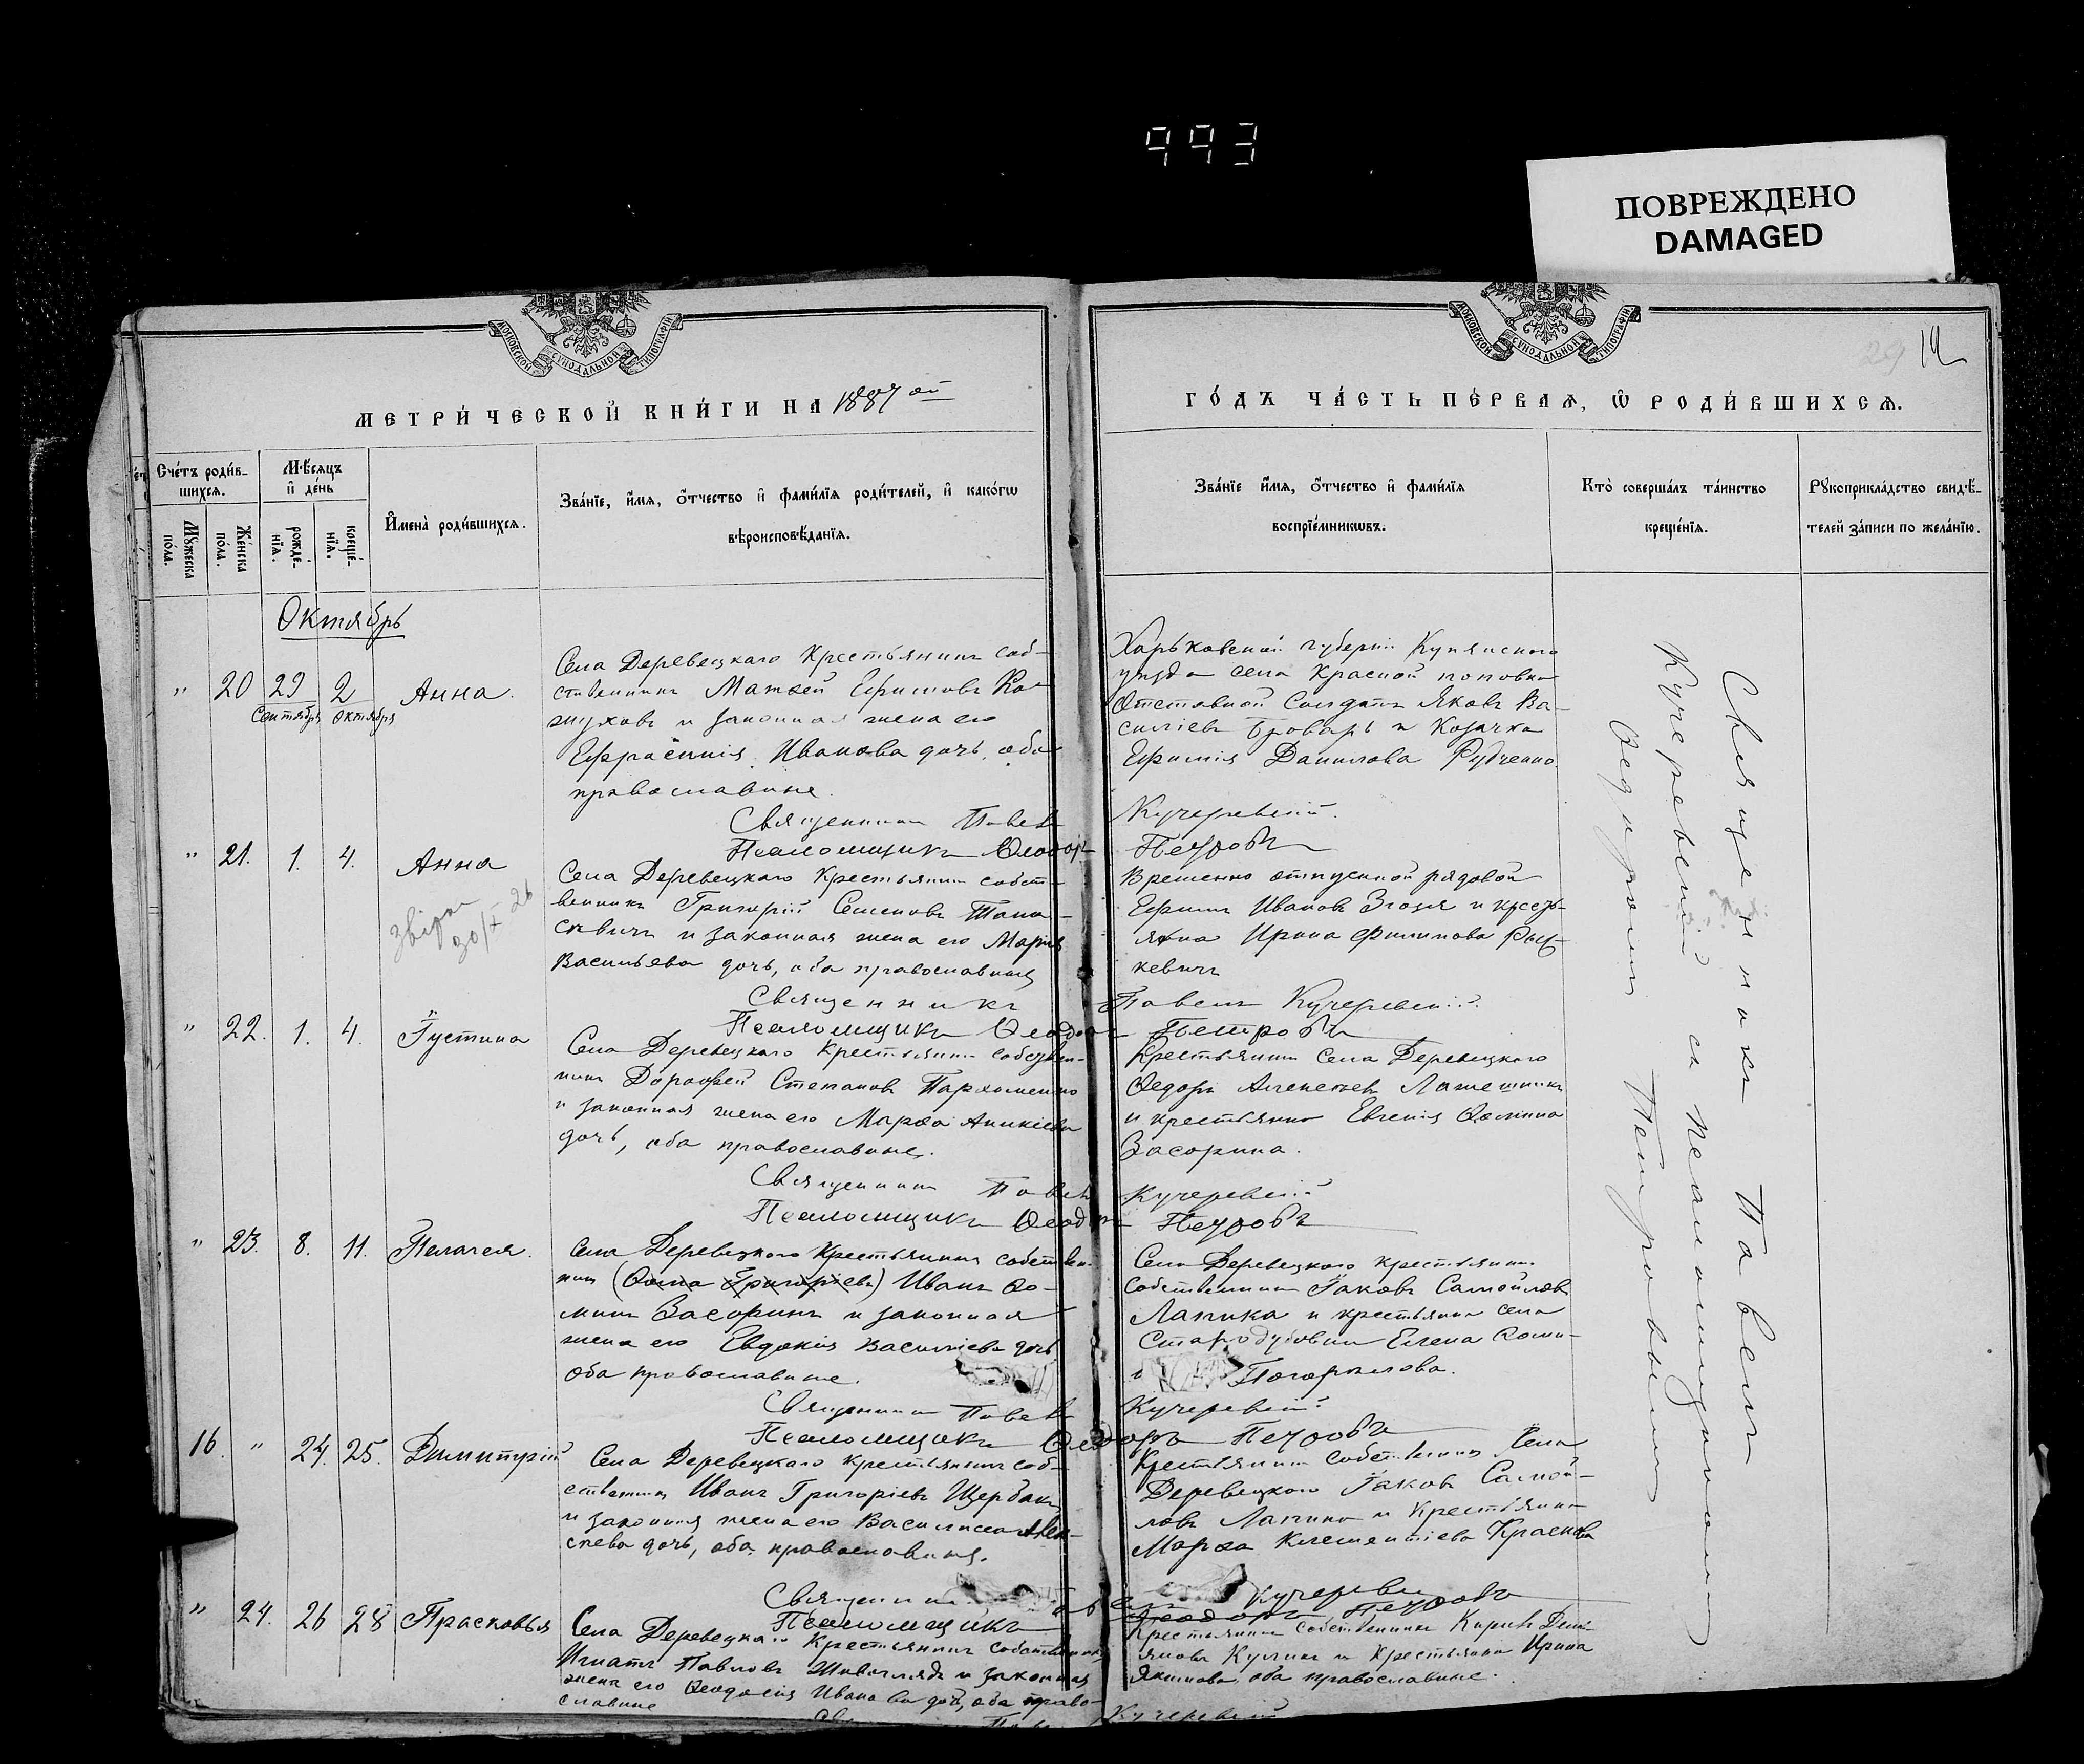 993
ПОВРЕЖДЕНО
DAMAGED
МОСКОВСКОЙ СѴНОДАЛЬНОЙ ТИПОГРАФІИ
МОСКОВСКОЙ СѴНОДАЛЬНОЙ ТИПОГРАФІИ
29 12
МЕТРИ́ЧЕСКОЙ КНИ́ГИ НА 1887 ой
ГО́ДЪ ЧА́СТЬ ПЕ́РВАѦ, Ѡ҆ РОДИ́ВШИХСѦ.
Сче́тъ роди́в-
шихсѧ.
Мѣ́сѧцъ
и҆ де́нь
Мꙋ́жеска
по́ла.
Же́нска
по́ла.
рожде́-
нїѧ.
креще́-
нїѧ.
И҆мена̀ роди́вшихсѧ.
Зва́нїе, и҆́мѧ, ѻ҆́тчество и҆ фами́лїѧ роди́телей, и҆ како́гѡ
вѣроисповѣ́данїѧ.
Зва́нїе и҆́мѧ, ѻ҆́тчество и҆ фами́лїѧ
воспрїе́мникѡвъ.
Кто̀ соверша́лъ та́инство
креще́нїѧ.
Рꙋкоприкла́дство свидѣ́-
телей за́писи по жела́нїю.
Октябрь
" 20 29 2 Анна.
Сентября Октября
Села Деревецкаго Крестьянинъ соб-
ственникъ Матѳей Ефимовъ Ко-
жуховъ и законная жена его
Ефросинія Иванова дочь, оба
православные.
Харьковской губерніи Купянского
уезда села Красной поповки
Отставной Солдатъ Яковъ Ва-
силіевъ Броварь и Козачка
Ефимія Данилова Рудченко.
Священникъ Павелъ Кучеревскій.
Псаломщикъ Ѳеодоръ Петровъ
" 21. 1. 4. Анна
Села Деревецкаго Крестьянинъ собст-
венникъ Григорій Семеновъ Тана-
севичъ и законная жена его Марія
Васильева дочь, оба православные
Временно отпускной рядовой
Ефимъ Ивановъ и кресть-
янка Ирина Филипова Рыц-
кевичъ
Священникъ Павелъ Кучеревскій.
Псаломщикъ Ѳеодоръ Петровъ
" 22. 1. 4. Іустина
Села Деревецкаго Крестьянинъ собствен-
никъ Дороѳей Степановъ Пархоменко
и законная жена его Марѳа Аникіева
дочь, оба православные.
Крестьянинъ Села Деревецкого
Ѳедоръ
и крестьянка Евгенія Ѳомина
Засорина.
Священникъ Павелъ Кучеревскій
Псаломщикъ Ѳеодоръ Петровъ
" 23. 8. 11. Пелагея.
Села Деревецкого Крестьянинъ собствен-
никъ (Ѳома Григоріевъ) Иванъ Ѳо-
минъ Засоринъ и законная
жена его Евдокія Василіева дочь
оба православные.
Села Деревецкого крестьянинъ
собственникъ Іаковъ Самойловъ
Лапика и крестьянка села
Елена Ѳоми-
Погорѣлова.
Священникъ Павелъ Кучеревскій
Псаломщикъ Ѳеодоръ Петровъ
16. " 24. 25. Димитрій
Села Деревецкаго крестьянинъ соб-
ственникъ Иванъ Григоріевъ Щербакъ
и законная жена его Василиса Алек-
сѣева дочь, оба православные.
Крестьянинъ собственникъ Села
Деревецкого Іаковъ Самой-
ловъ Лапика и Крестьянка
Марѳа Климентіева Краснова
Священникъ Кучеревскій
Псаломщикъ Ѳеодоръ Петровъ
" 24. 26 28 Прасковья
Села Деревецкаго Крестьянинъ собственникъ
Игнатъ Павловъ и законная
жена его Ѳеодосія Иванова дочь, оба право-
славные
Крестьянинъ Собственникъ Киріакъ
и Крестьянка Ирина
Якимова, оба православные.
Кучеревскій
Священникъ Павелъ
Кучеревскій съ псаломщикомъ
Ѳедоромъ Петровымъ